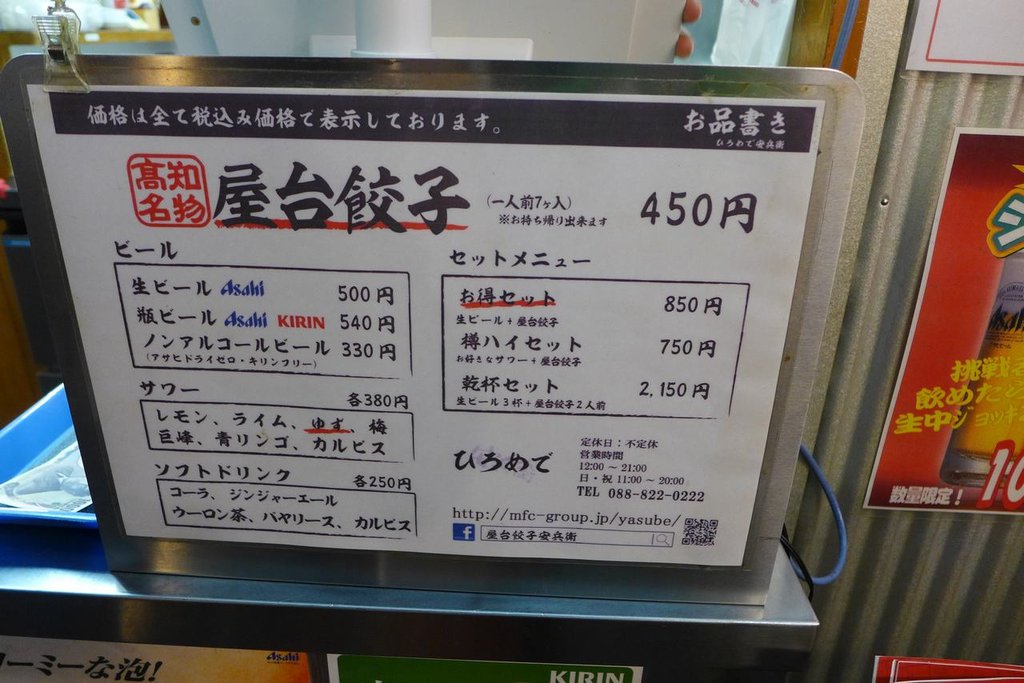 価格は全て税込み価格で表示しております。
お品書き
ひろめで安兵衛
高知名物
屋台餃子
(一人前7ヶ入)
※お持ち帰り出来ます
450円
ビール
生ビール Asahi 500円
瓶ビール Asahi KIRIN 540円
ノンアルコールビール 330円
(アサヒドライゼロ・キリンフリー)
サワー 各380円
レモン、ライム、ゆず、梅
巨峰、青リンゴ、カルピス
ソフトドリンク 各250円
コーラ、ジンジャーエール
ウーロン茶、バヤリース、カルピス
セットメニュー
お得セット 850円
生ビール+屋台餃子
樽ハイセット 750円
お好きなサワー+屋台餃子
乾杯セット 2,150円
生ビール3杯+屋台餃子2人前
ひろめで
定休日:不定休
営業時間
12:00~21:00
日・祝 11:00~20:00
TEL 088-822-0222
http://mfc-group.jp/yasube/
f 屋台餃子安兵衛
挑戦者
飲めたら
生中ジョッキ
数量限定!
ーミーな泡!
Asahi
KIRIN